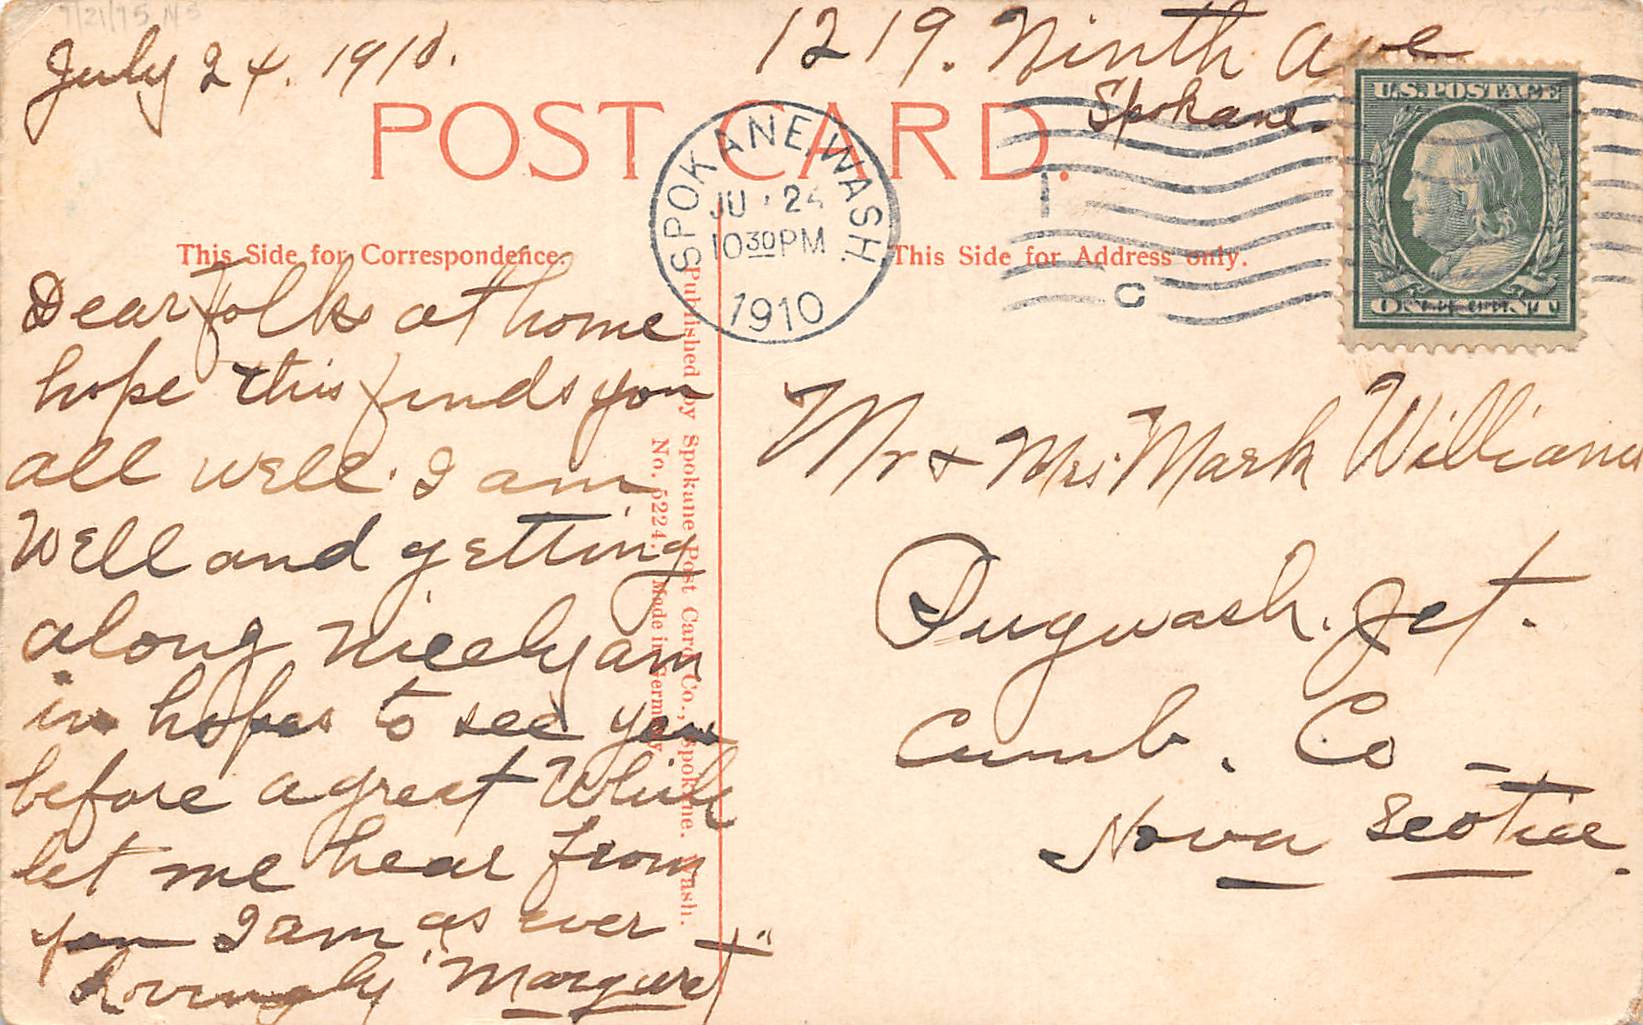 July 24. 1910.
1219. Ninth Ave
Spokane.
POST CARD.
SPOKANE, WASH.
JU 24
10 30 PM
1910
U.S. POSTAGE
This Side for Correspondence.
This Side for Address only.
Dear Folks at home
hope this finds you
all well. I am
Well and getting
along nicely am
in hopes to see you
before a great While
let me hear from
you I am as ever
Lovingly "Margaret"
Published by Spokane Post Card Co., Spokane. Wash.
No. 5224. Made in Germany
Mr + Mrs Mark Williams
Pugwash. Jct.
Cumb. Co
Nova Scotia.